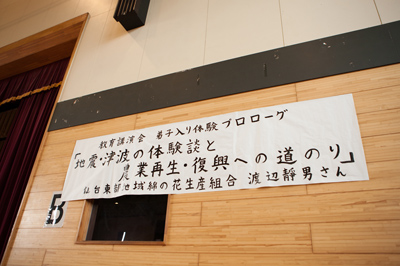 教育講演会 弟子入り体験プロローグ
「地震・津波の体験談と
農業再生・復興への道のり」
仙台東部地域綿の花生産組合 渡辺静男さん